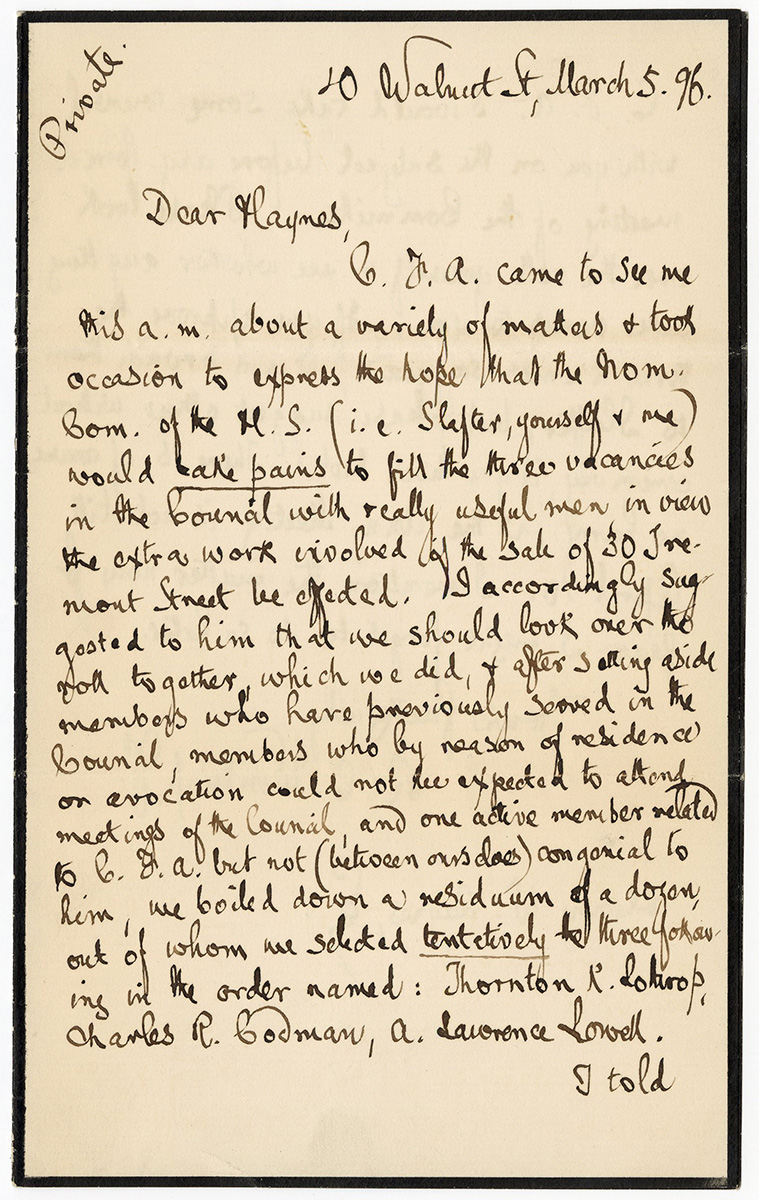 Private.
40 Walnut St, March 5. 96.
Dear Haynes,
C. F. A. came to see me
this a.m. about a variety of matters & took
occasion to express the hope that the Nom.
Com. of the H. S. (i. e. Slafter, yourself & me)
would take pains to fill the three vacancies
in the Council with really useful men in view
the extra work involved if the sale of 30 Tre-
mont Street be effected. I accordingly sug-
gested to him that we should look over the
roll together, which we did, & after setting aside
members who have previously served in the
Council, members who by reason of residence
or avocation could not be expected to attend
meetings of the Council, and one active member related
to C. F. A. but not (between ourselves) congenial to
him, we boiled down a residuum of a dozen,
out of whom we selected tentatively the three follow-
ing in the order named: Thornton K. Lothrop,
Charles R. Codman, A. Lawrence Lowell.
I told